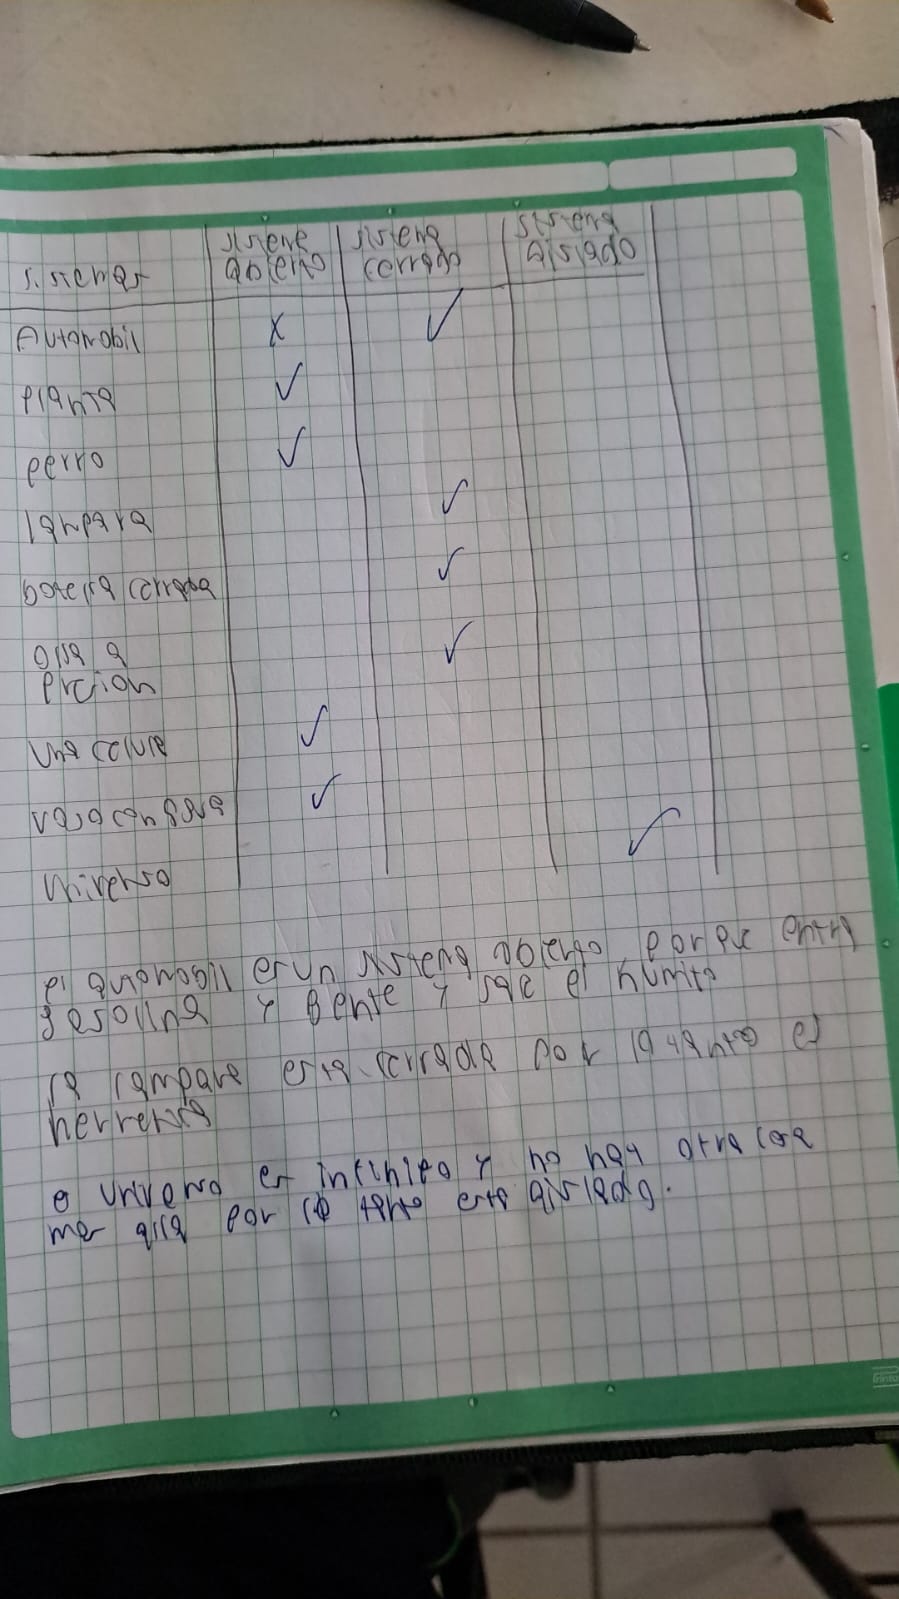 sistemas sistema abierto sistema cerrado sistema aislado
Automobil x ✓
planta ✓
perro ✓
lampara ✓
botella cerrada ✓
olla a ✓
precion
una celula ✓
vaso con agua ✓
universo ✓
el automobil es un sistema abierto porque entra
gasolina y gente y sale el humito
la lampara esta cerrada por lo tanto es
universo es infinito y no hay otra cosa
mas alla por lo tanto esta aislado.
Printa